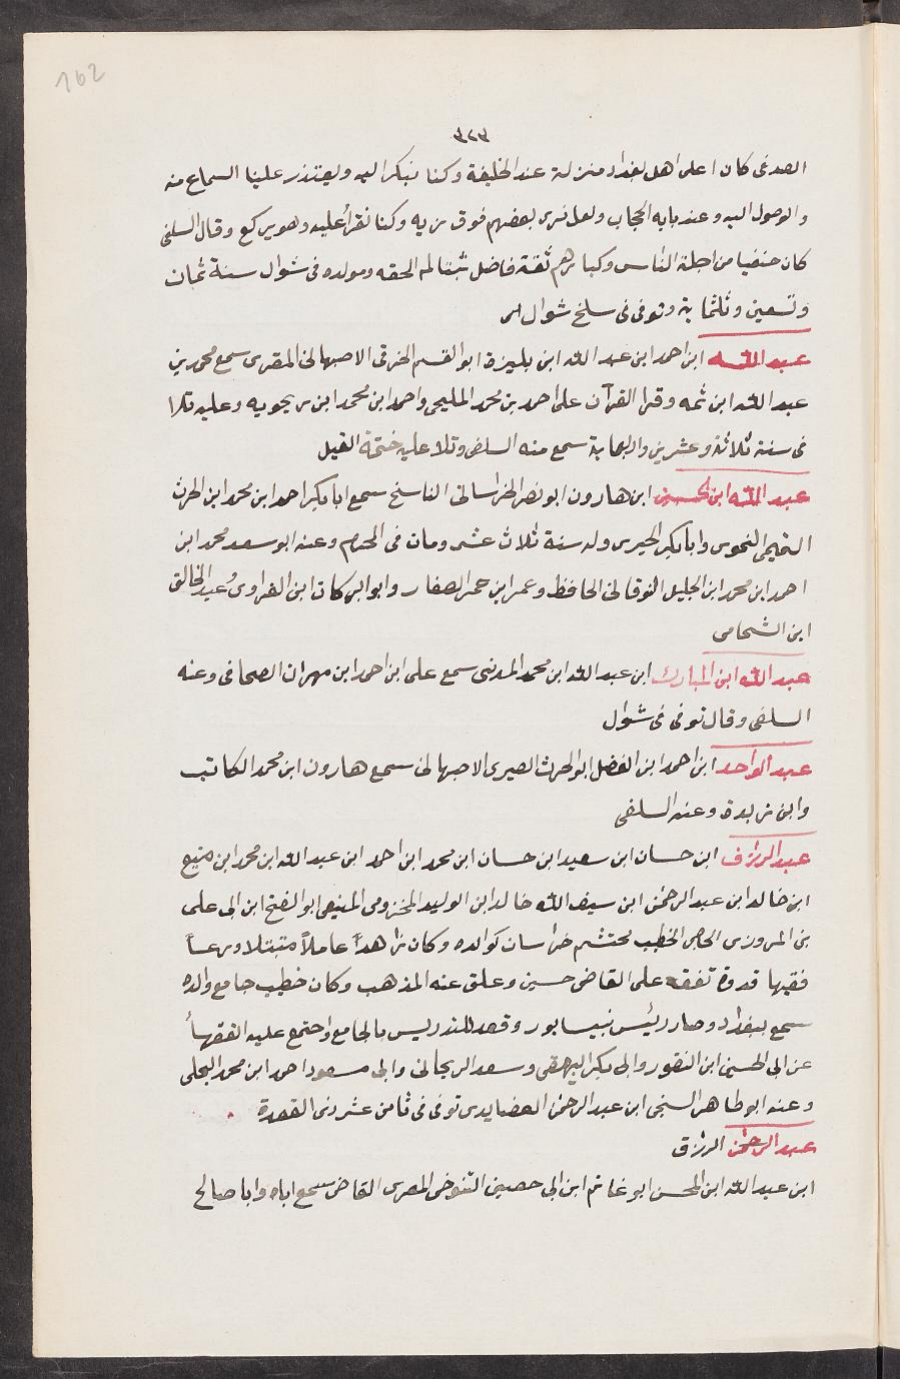 162
٣٢٣
الصدغى كان اعلى اهل بغداد منزلة عند الخليفة وكنا نبكر اليه ويعتذر علينا السماع منه
والوصول اليه وعند بابه الحجاب ولعل نرى بعضهم فوق زيه وكنا نقرأ عليه وهو يركع وقال السلفى
كان حنفيا من اجلة الناس وكبارهم ثقة فاضل ثبتا لم الحقه ومولده فى شوال سنة ثمان
وتسعين وثلثماية وتوفى فى سلخ شوال
عبد الله ابن احمد ابن عبد الله ابن بليزة ابو القسم الخرقى الاصبهانى المقرى سمع محمد بن
عبد الله ابن ثمه وقرا القرآن على احمد بن محمد المليحى واحمد ابن محمد ابن يحويه وعليه تلا
فى سنة ثلاثة وعشرين واربعماية سمع منه السلفى وتلا عليه ختمة
عبد الله ابن الحسين ابن هارون ابو نصر الخراسانى الناسخ سمع ابا بكر احمد ابن محمد ابن الحرث
التميمى النحوى وابا بكر الحيرى وله سنة ثلاث عشر ومات فى المحرم وعنه ابو سعد محمد ابن
احمد ابن محمد ابن الجليل النوقانى الحافظ وعمر ابن الصفار وابو البركات ابن الفراوى وعبد الخالق
ابن الشحامى
عبد الله ابن المبارك ابن عبد الله ابن محمد المدينى سمع على ابن احمد ابن مهران الصحافى وعنه
السلفى وقال توفى فى شوال
عبد الواحد ابن احمد ابن الفضل ابو الحرث الاصبهانى سمع هارون ابن محمد الكاتب
وابن زبدة وعنه السلفى
عبد الرزاق ابن حسان ابن سعيد ابن حسان ابن محمد ابن احمد ابن عبد الله ابن محمد ابن منيع
ابن خالد ابن عبد الرحمٰن ابن سيف الله خالد ابن الوليد المخزومى المنيعى ابو الفتح ابن ابى على
بن المروزى الحاجى الخطيب محتشم خراسان كوالده وكان زاهداً عاملاً متبتلا ورعاً
فقيها قدوة تفقه على القاضى حسين وعلق عنه المذهب وكان خطيب جامع والده
سمع ببغداد وصار رئيس نيسابور وقصد للتدريس بالجامع واجتمع عليه الفقهاً
عن ابى الحسين ابن النقور وابى بكر البيهقى وسعد الريحانى وابى مسعود احمد ابن محمد البجلى
وعنه ابو طاهر السنجى ابن عبد الرحمن توفى فى ثامن عشر ذى القعدة
عبد الرحمٰن الرزاق
ابن عبد الله ابن المحسن ابو غانم ابن ابى حصين التنوخى المعرى القاضى سمع اباه وابا صالح